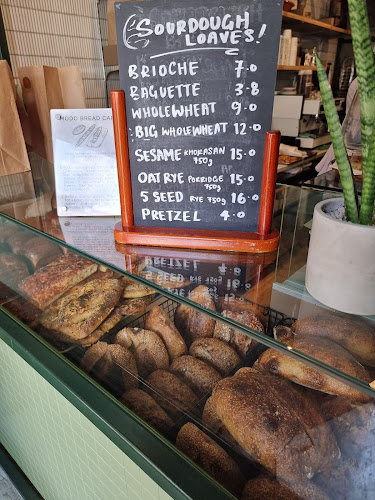 SOURDOUGH
LOAVES!
BRIOCHE 7.0
BAGUETTE 3.8
WHOLEWHEAT 9.0
BIG WHOLEWHEAT 12.0
SESAME KHORASAN 750g 15.0
OAT RYE PORRIDGE 750g 15.0
5 SEED RYE 750g 16.0
PRETZEL 4.0
BREAD
PRETZEL
5 SEED